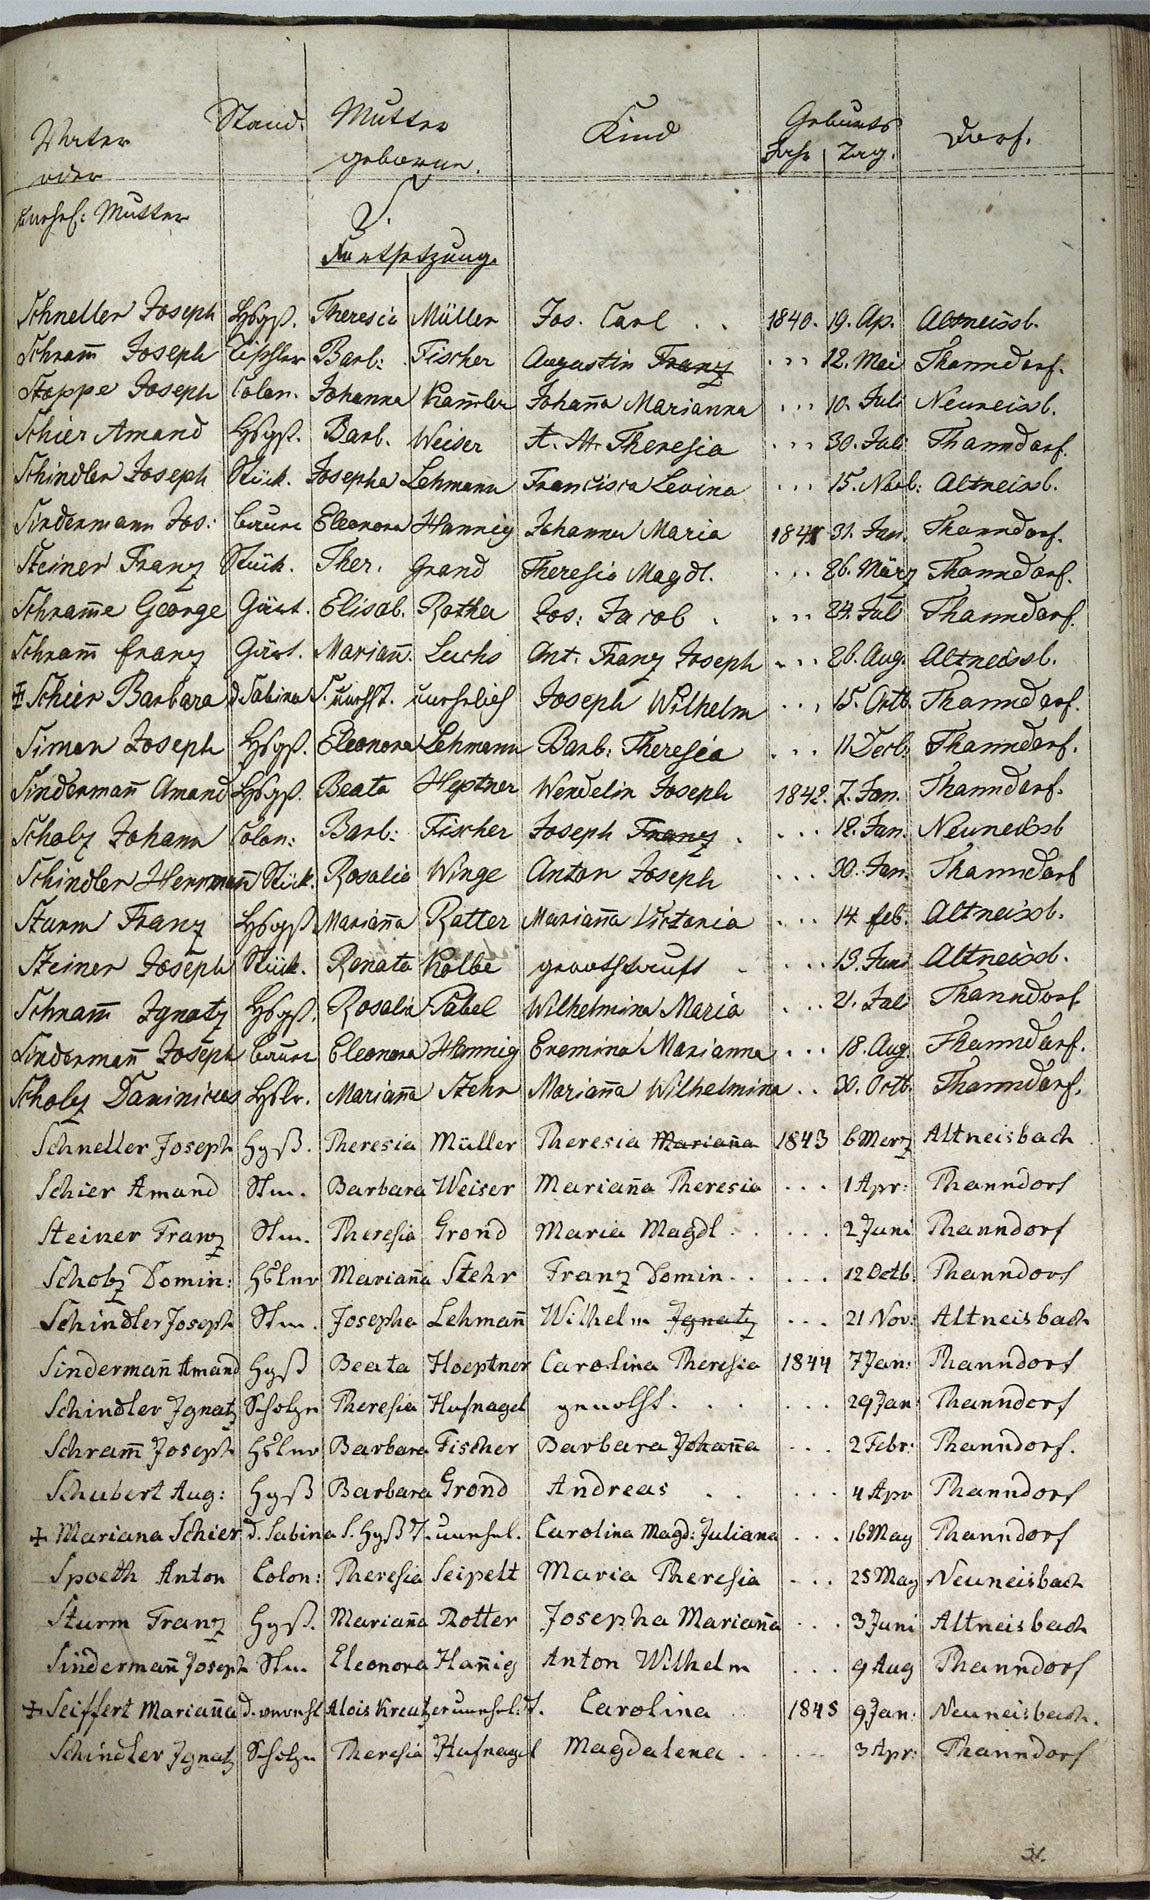 Vater Stand. Mutter Kind Geburts Dorf.
oder geborne. Jahr Tag.
unehel: Mutter
S.
Fortsetzung.
Schneller Joseph Hsgß. Theresia Müller Jos. Carl . . 1840. 19. Ap. Altneissb.
Schram̄ Joseph Tischler Barb: Fischer Augustin Franz . . . 12. Mai Thanndorf.
Stoppe Joseph Colon. Johanna Kam̄ler Johan̄a Marianna . . . 10. Juli Neuneissb.
Schier Amand Hsgß. Barb. Weiser A. M. Theresia . . . 30. Juli Thanndorf.
Schindler Joseph Stück. Josepha Lehmann Francisca Levina . . . 15. Novb: Altneissb.
Sindermann Jos: Bauer Eleonora Hannig Johanna Maria 1841 31. Jan. Thanndorf.
Steiner Franz Stück. Ther. Grand Theresia Magdl. . . . 26. März Thanndorf.
Schram̄e George Gärt. Elisab. Rother Jos: Jacob . . . . 24. Juli Thanndorf.
Schram̄ Franz Gärt. Marian̄ Luchs Ant. Franz Joseph . . . 26. Aug. Altneissb.
‡ Schier Barbara d Sabina S. unehlich Joseph Wilhelm . . . 15. Octb. Thanndorf.
Siman Joseph Hsgß. Eleonora Lehmann Barb: Theresia . . . 11 Decb. Thanndorf.
Sinderman̄ Amand Hsgß. Beata Heptner Wendelin Joseph 1842. 7. Jan. Thanndorf.
Scholz Johann Colon: Barb: Fischer Joseph Franz . . . . 18. Jan. Neuneissb
Schindler Herrman̄ Stück. Rosalia Winge Anton Joseph . . . 30. Jan. Thanndorf
Sturm Franz Hsgß. Marian̄a Rotter Marian̄a Victoria . . . 14 feb. Altneissb.
Steiner Joseph Stück. Renata Kolbe gnothtauft . . . . 13. Juni Altneissb.
Schram̄ Ignatz Hsgß. Rosalia Sabel Wilhelmina Maria . . . 21. Juli Thanndorf
Sinderman̄ Joseph Bauer Eleonora Hannig Eremina Marianna . . . 18. Aug. Thanndorf.
Scholz Daminicus Hslr. Marian̄a Stehr Marian̄a Wilhelmina . . 30. Octb. Thanndorf.
Schneller Joseph Hgß. Theresia Müller Theresia Marian̄a 1843 6 Merz Altneisbach
Schier Amand Stm. Barbara Weiser Marian̄a Theresia . . . 1 Apr: Thanndorf
Steiner Franz Stm. Theresia Grond Maria Magdl . . . . 2 Juni Thanndorf
Scholz Domin: Hölnr Marian̄a Stehr Franz Domin . . . . . 12 Octb. Thanndorf
Schindler Joseph Stm. Josepha Lehman̄ Wilhelm Ignatz . . . 21 Nov: Altneisbach
Sinderman̄ Amand Hgß Beata Hoeptner Carolina Theresia 1844 7 Jan: Thanndorf
Schindler Ignatz Scholze Theresia Hufnagel genotht. . . . . . 29 Jan Thanndorf
Schram̄ Joseph Hölnr Barbara Fischer Barbara Johan̄a . . . 2 Febr: Thanndorf.
Schubert Aug: Hgß Barbara Grond Andreas . . . . . 4 Apr Thanndorf
‡ Mariana Schier d. Sabina S. Hgß T. unehel. Carolina Magd: Juliana . . . 16 May Thanndorf
Spoeth Anton Colon: Theresia Seipelt Maria Theresia . . . 25 May Neuneisbach
Sturm Franz Hgß. Marian̄a Rotter Josepha Marian̄a . . . 3 Juni Altneisbach
Sinderman̄ Joseph Stm Eleonora Han̄ig Anton Wilhelm . . . 9 Aug Thanndorf
‡ Seiffert Marian̄a d. Alois Kreutzer unehel: T. Carolina 1845 9 Jan: Neuneisbach.
Schindler Ignatz Scholze Theresia Hufnagel Magdalena . . . . 3 Apr: Thanndorf